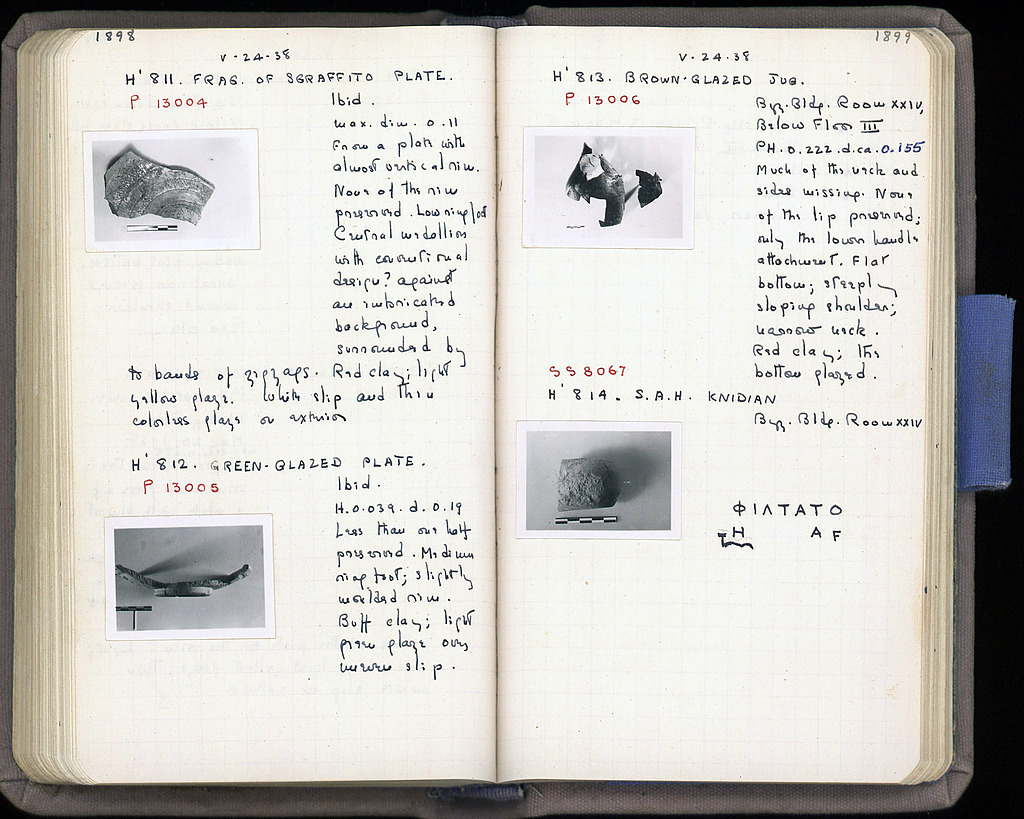 1898
V-24-38
H' 811. FRAG. OF SGRAFFITO PLATE.
P 13004
Ibid.
max. dim. 0.11
From a plate with
almost vertical rim.
None of the rim
preserved. Low ring foot
Central medallion
with conventional
design? against
an imbricated
background,
surrounded by
to bands of zigzags. Red clay; light
yellow glaze. White slip and thin
colorless glaze on exterior
H' 812. GREEN-GLAZED PLATE.
P 13005
Ibid.
H. 0.039. d. 0.19
Less than one half
preserved. Medium
ring foot; slightly
moulded rim.
Buff clay; light
green glaze over
uneven slip.
1899
V-24-38
H' 813. BROWN-GLAZED JUG.
P 13006
Byz. Bldg. Room XXIV,
Below Floor III
PH. 0.222. d. ca. 0.155
Much of the neck and
sides missing. None
of the lip preserved;
only the lower handle
attachment. Flat
bottom; steeply
sloping shoulder;
narrow neck.
Red clay; the
bottom glazed.
SS 8067
H' 814. S.A.H. KNIDIAN
Byz. Bldg. Room XXIV
ΦΙΛΤΑΤΟ
Η Α F